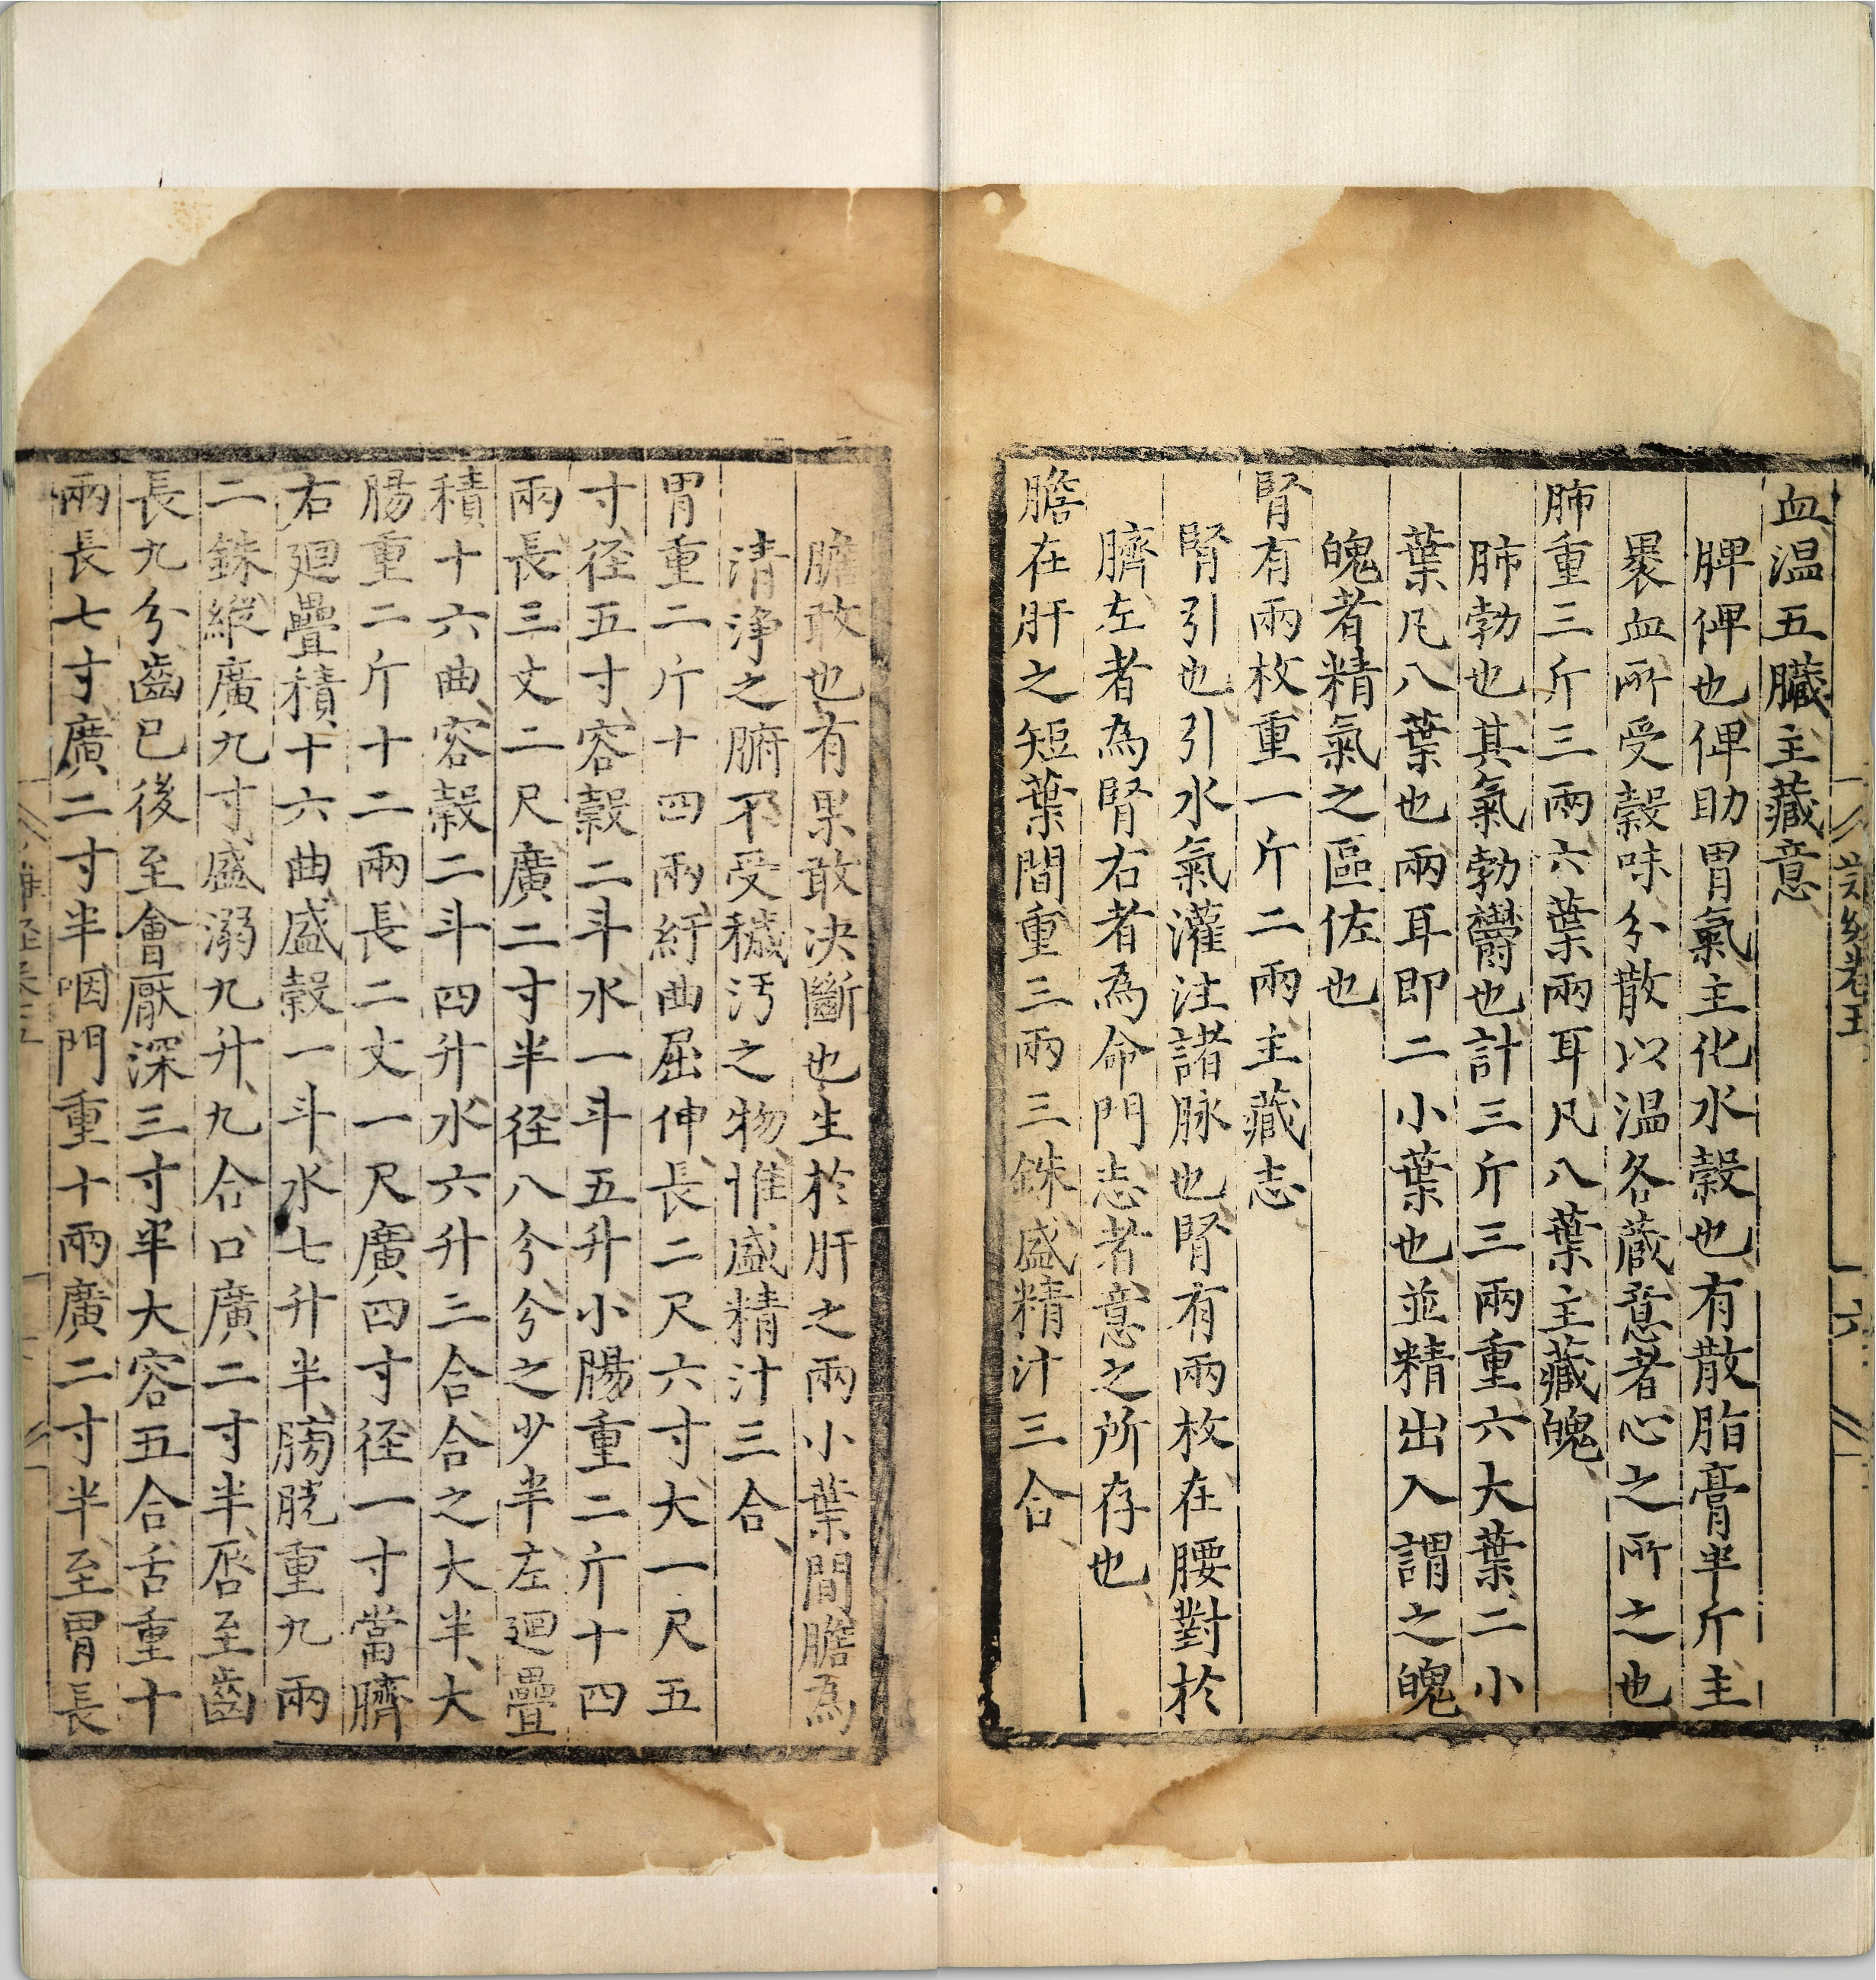 血温五臓主藏意
脾俾也俾助胃氣主化水糓也有散脂膏半斤主
褁血所受糓味分散以温各蔵意者心之所之也
肺重三斤三兩六葉兩耳凡八葉主藏魄
肺勃也其氣勃欝也計三斤三兩重六大葉二小
葉凡八葉也兩耳即二小葉也並精出入謂之魄
魄者精氣之區佐也
腎有兩枚重一斤二兩主藏志
腎引也引水氣灌注諸脉也腎有兩枚在腰對於
臍左者為腎右者為命門志者意之所存也
膽在肝之短葉間重三兩三銖盛精汁三合
膽敢也有果敢决斷也生於肝之兩小葉間膽為
清淨之腑不受穢汚之物惟盛精汁三合
胃重二斤十四兩紆曲屈伸長二尺六寸大一尺五
寸径五寸容糓二斗水一斗五升小腸重二斤十四
兩長三丈二尺廣二寸半径八分分之少半左廻疊
積十六曲容糓二斗四升水六升三合合之大半大
腸重二斤十二兩長二丈一尺廣四寸径一寸當臍
右廻疊積十六曲盛糓一斗水七升半膀胱重九兩
二銖縱廣九寸盛溺九升九合口廣二寸半唇至齒
長九分齒已後至會厭深三寸半大容五合舌重十
兩長七寸廣二寸半咽門重十兩廣二寸半至胃長